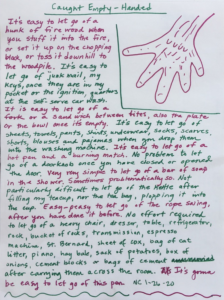 Caught Empty-Handed
It's easy to let go of a
hunk of fire wood when
you stuff it into the fire,
or set it up on the chopping
block, or toss it downhill to
the woodpile. It's easy to
let go of junk mail, my
keys, once they are in my
pocket or the ignition, quarters
at the self-serve car wash.
It is easy to let go of a
fork or a sandwich between bites, also the plate
or the bowl once it's empty. It's easy to let go of
sheets, towels, pants, shirts, underwear, socks, scarves,
shorts, blouses and pajamas when you dump them
into the washing machine. It's easy to let go of a
hot pan, and a burning match. No problem to let
go of a doorknob once you have closed or opened
the door. Very very simple to let go of a bar of soap
in the shower. Sometimes problematic so. Not
particularly difficult to let go of the kettle after
filling my teacup, nor the tea bag, plopping it into
the cup. Easy-peasy to let go of the rope swing,
after you have done it before. No effort required
to let go of a heavy chair, dresser, table, refrigerator,
rock, bucket of rocks, transmission, espresso
machine, St. Bernard, sheet of ice, bag of cat
litter, piano, hay bale, sack of potatoes, box of
onions, cement blocks or bags of cement
after carrying them across the room. It's gonna
be easy to let go of this pen. NC 1-26-20